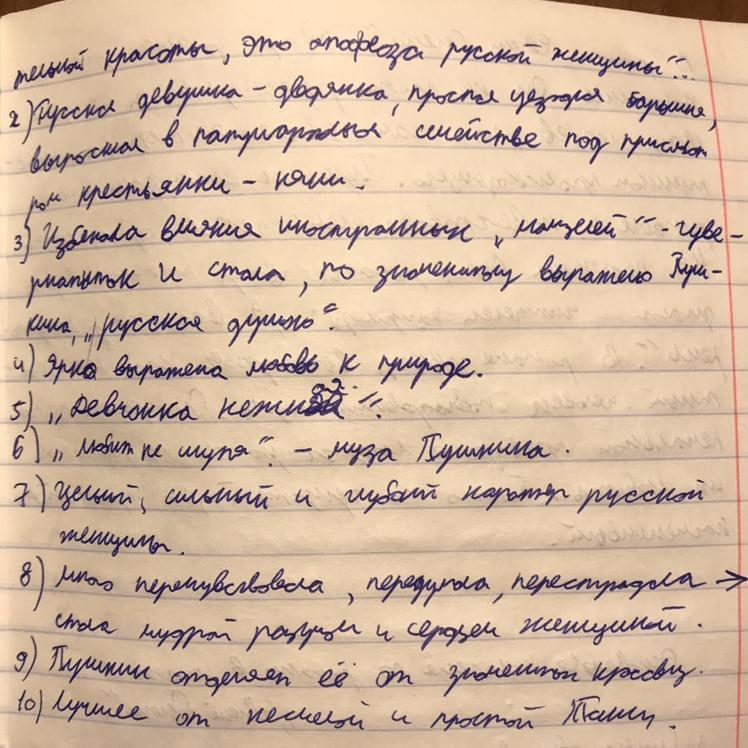 тельной красоты, это апофеоза русской женщины"...
2) Русская девушка - дворянка, простая уездная барышня,
выросшая в патриархальном семействе под присмот
ром крестьянки - няни.
3) Избежала влияния иностранных „мамзелей" - гувер-
нанток и стала, по знаменитому выражению Пуш-
кина, „русская душою".
4) Ярко выражена любовь к природе.
5) „Девчонка нежная".
6) „Любит не шутя". - муза Пушкина.
7) Цельный, сильный и глубокий характер русской
женщины.
8) Много перечувствовала, передумала, перестрадала →
стала мудрой разумом и сердцем женщиной.
9) Пушкин отделяет её от знаменитых красавиц.
10) Лучшее от несмелой и простой Тани.